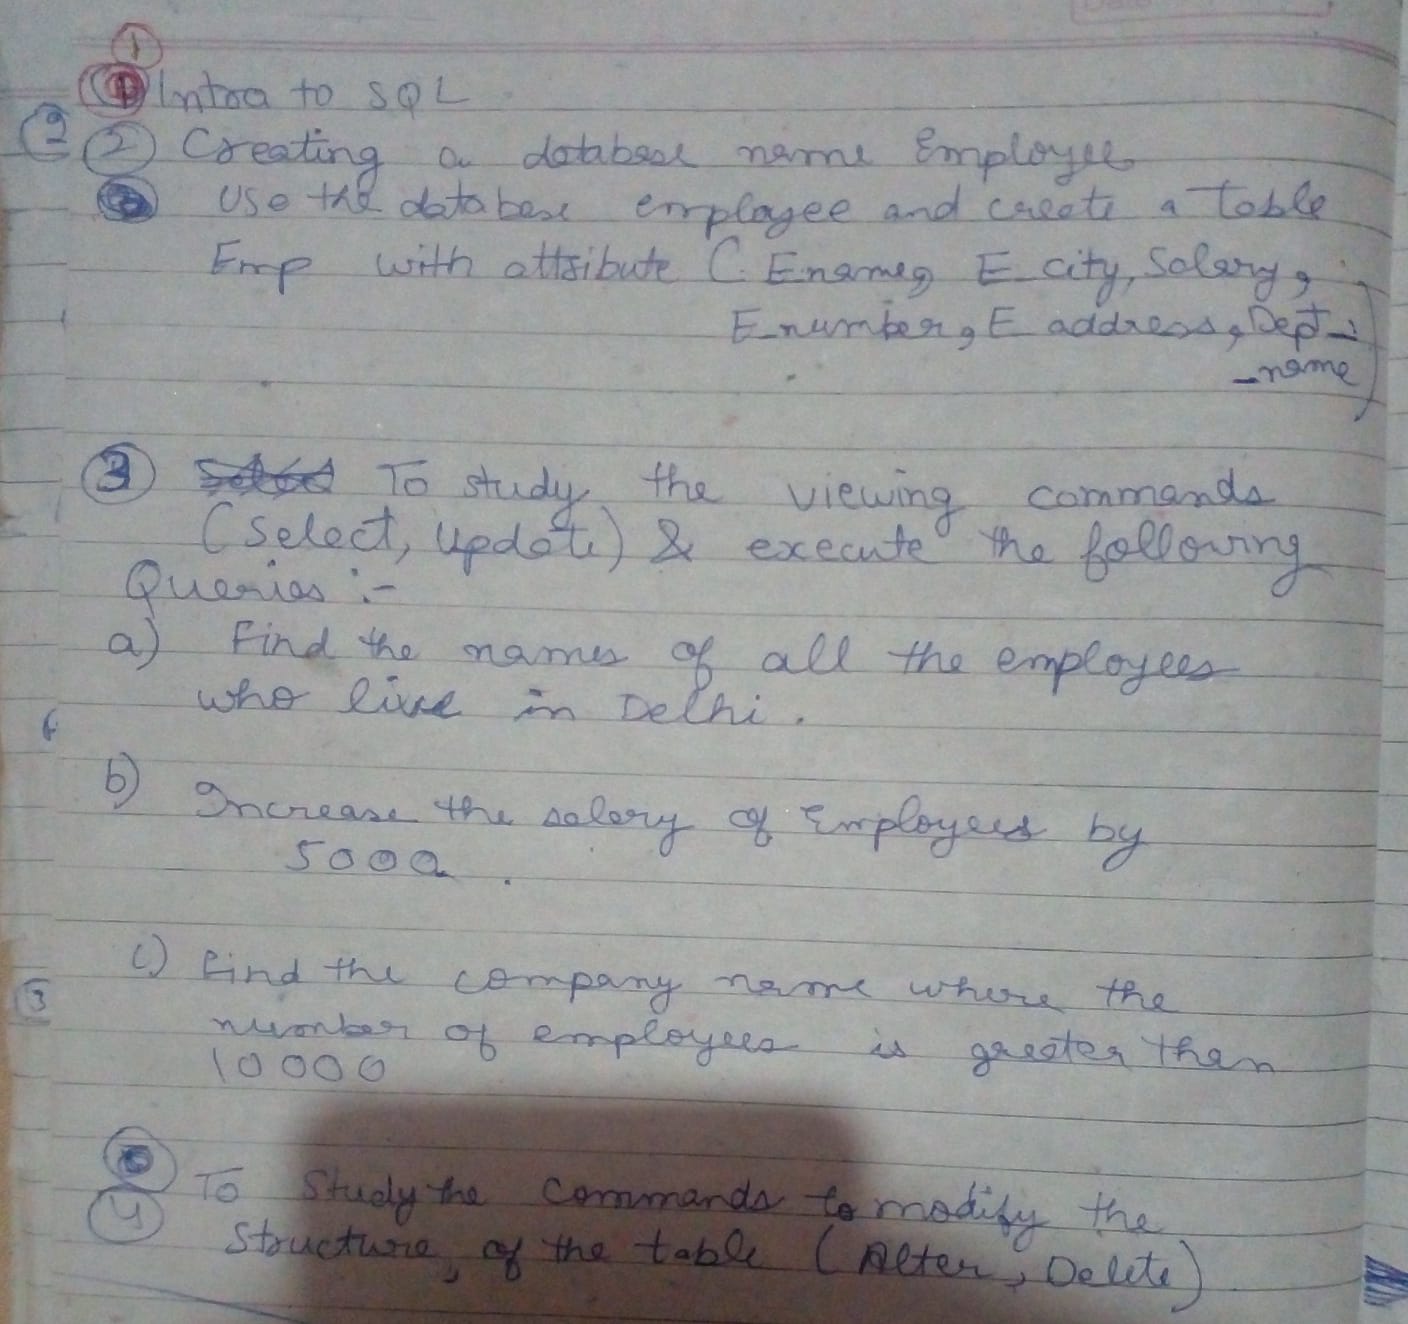 ① Intro to SQL
② Creating a database name Employee
Use the database employee and create a table
Emp with attribute ( Ename, E_city, Salary,
E_number, E_address, Dept_
_name)
③ To study the viewing commands
(Select, Update) & execute the following
Queries :-
a) Find the names of all the employees
who live in Delhi.
b) Increase the salary of Employees by
5000.
c) Find the company name where the
number of employees is greater than
10000
④ To Study the Commands to modify the
Structure of the table (Alter, Delete)